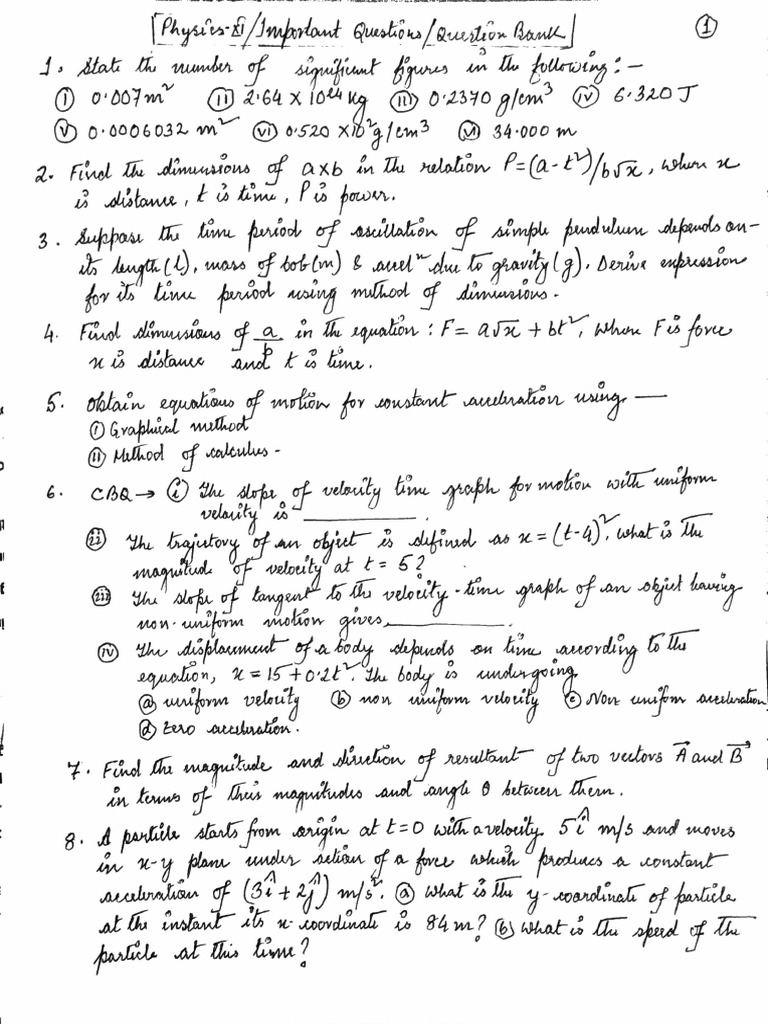 Physics-XI/Important Questions/Question Bank
①
1. State the number of significant figures in the following:-
(i) 0.007m² (ii) 2.64 x 10²⁴ kg (iii) 0.2370 g/cm³ (iv) 6.320 J
(v) 0.0006032 m² (vi) 0.520 x10² g/cm³ (vii) 34.000 m
2. Find the dimensions of axb in the relation P=(a-t²)/b√x, where x
is distance, t is time, P is power.
3. Suppose the time period of oscillation of simple pendulum depends on-
its length(l), mass of bob(m) & accelⁿ due to gravity(g). Derive expression
for its time period using method of dimensions.
4. Find dimensions of a/b in the equation: F= a√x + bt², where F is force
x is distance and t is time.
5. Obtain equations of motion for constant acceleration using.—
(i) Graphical method
(ii) Method of calculus-
6. CBQ → (i) The slope of velocity time graph for motion with uniform
velocity is __________.
(ii) The trajectory of an object is defined as x = (t-4)², what is the
magnitude of velocity at t = 5?
(iii) The slope of tangent to the velocity-time graph of an object having
non-uniform motion gives __________.
(iv) The displacement of a body depends on time according to the
equation, x = 15 + 0.2t². The body is undergoing
(a) uniform velocity (b) non uniform velocity (c) Non uniform acceleration
(d) zero acceleration.
7. Find the magnitude and direction of resultant of two vectors A⃗ and B⃗
in terms of their magnitudes and angle θ between them.
8. A particle starts from origin at t=0 with a velocity 5î m/s and moves
in x-y plane under action of a force which produces a constant
acceleration of (3î + 2ĵ) m/s². (a) What is the y-coordinate of particle
at the instant its x-coordinate is 84 m? (b) What is the speed of the
particle at this time?